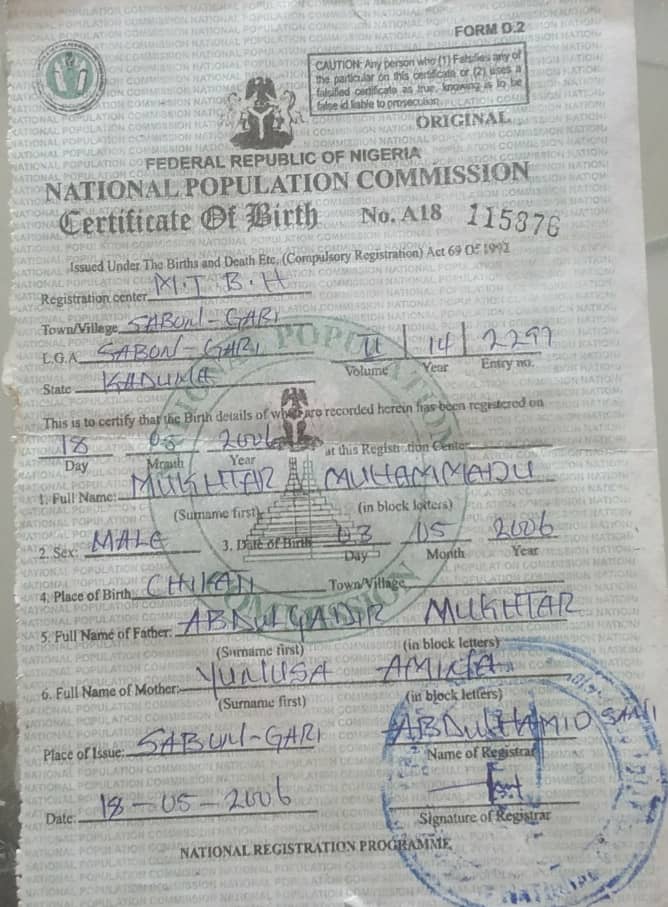 FORM D.2
CAUTION: Any person who (1) Falsifies any of
the particular on this certificate or (2) uses a
falsified certificate as true, knowing is to be
false id liable to prosecution
ORIGINAL
FEDERAL REPUBLIC OF NIGERIA
NATIONAL POPULATION COMMISSION
Certificate Of Birth No. A18 115876
Issued Under The Births and Death Etc. (Compulsory Registration) Act 69 Of 1992
Registration center M.T B.H
Town/Village SABON-GARI
L.G.A SABON-GARI 14 2297
Volume Year Entry no.
State KADUNA
This is to certify that the Birth details of which are recorded herein has been registered on
18 05 2006 at this Registration Center
Day Month Year
1. Full Name: MUKHTAR MUHAMMADU
(Surname first) (in block loiters)
2. Sex: MALE 3. Date of Birth 03 05 2006
Day Month Year
4. Place of Birth Town/Village
5. Full Name of Father: ABDULQADIR MUKHTAR
(Surname first) (in block letters)
6. Full Name of Mother: YUNUSA AMINA
(Surname first) (in block letters)
Place of Issue: SABON-GARI ABDULHAMID SANI
Name of Registrar
Date: 18-05-2006
Signature of Registrar
NATIONAL REGISTRATION PROGRAMME